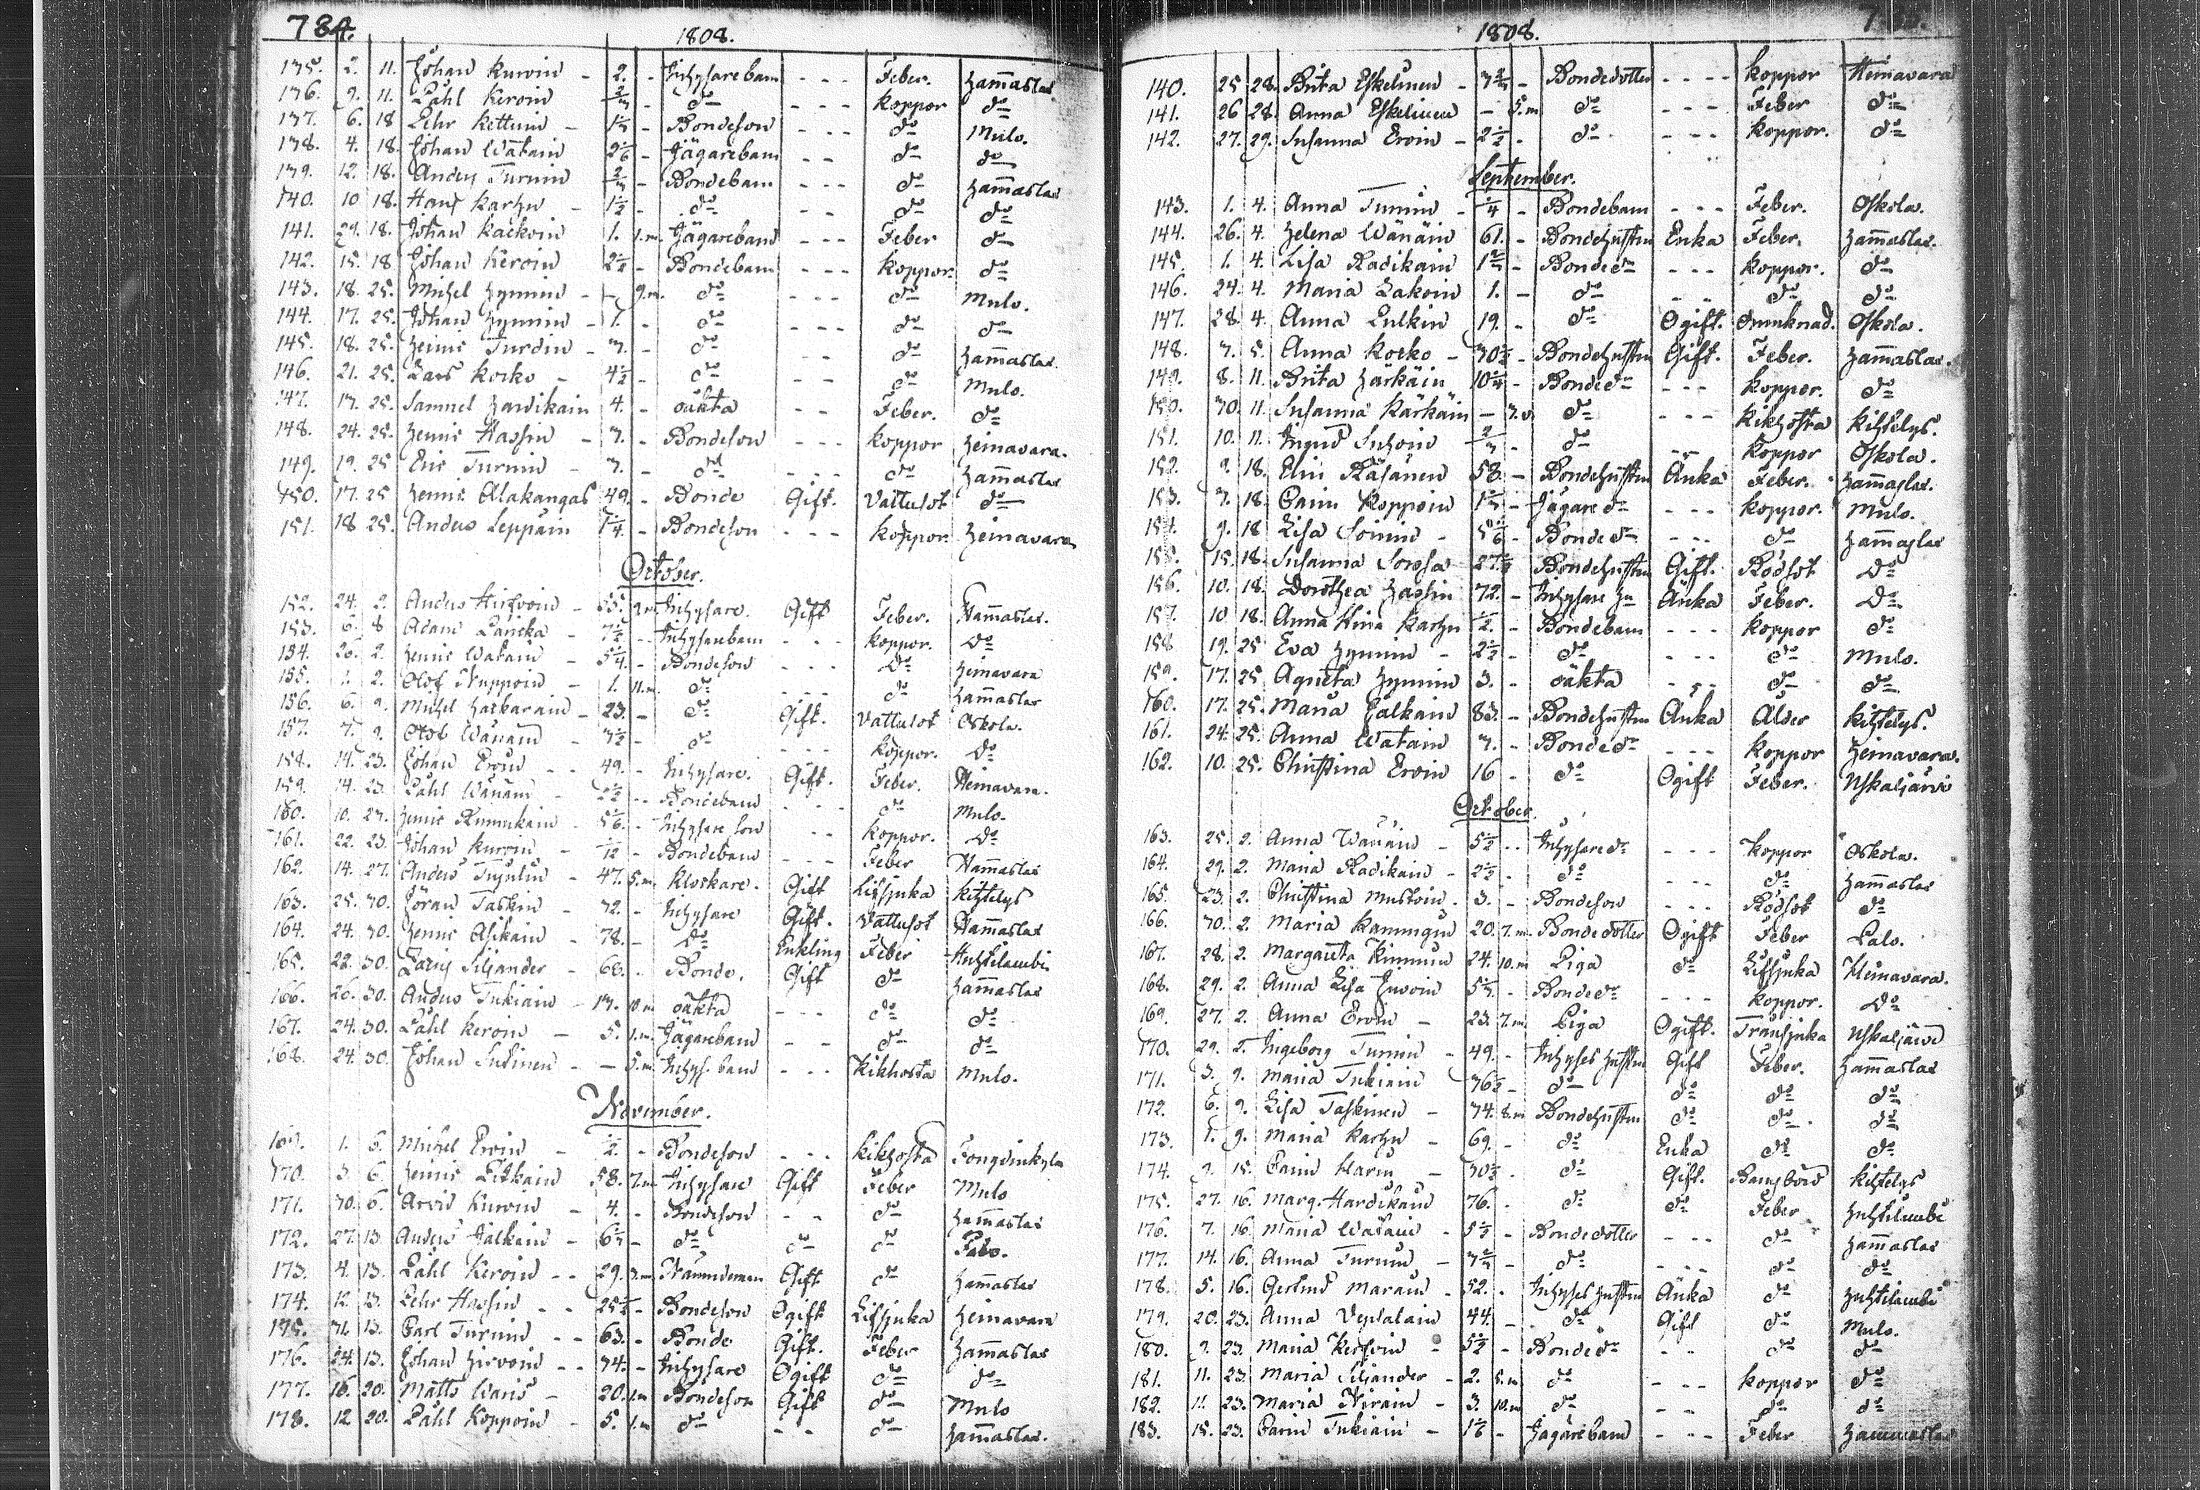 784.
1808.
135. 2. 11. Johan Kurvin - 2. - Inhysarebarn - - - Feber. Hammaslax.
136. 9. 11. Påhl Keroin 2/3 - do - - - koppor do
137. 6. 18 Pehr Kettuin - - Bondeson - - - do Mulo.
138. 4. 18. Johan Watain - Jägarebarn - - do do
139. 12. 18. Anders Turuin 2/3 - Bondebarn - - - do Hammaslax
140. 10 18. Hans Karhu - 1 1/2 - do - - do do
141. 29. 18. Johan Kackoin 1. 1.m. Jägarebarn - - - Feber do
142. 15. 18 Johan Keroin 2 1/2 - Bondebarn - - - koppor. do
143. 18. 25. Michel Hynnin - - 9.m. do - - - do Mulo.
144. 17. 25. Johan Hynnin - 1. - do - - - do do
145. 18. 25. Henric - 3. - do - - do Hammaslax.
146. 21. 25. Lars Korko - 4 1/2 - do - - do Mulo.
147. 17. 25. Samuel Hardikain 4. - oäkta - - Feber. do
148. 24. 25. Henric Hassin - 3. - Bondeson - - - koppor Heinavara.
149. 19. 25 Eric Turuin - 3. - do - - - do Hammaslax
150. 17. 25 Henric Alakangas 49. - Bonde Gift. Vattusot do
151. 18 25. Anders Leppäin 1/4. - Bondeson - - - koppor Heinavara
October.
152. 24. 2. Anders Hirfvoin - 55. Inhysare. Gift Feber. Hammaslax.
153. 6. 8 Adam - - Inhysarebarn - - - koppor. Do
154. 26. 2. Henric Watain - 5 1/4. - Bondeson - - - Do Heinavara
155. 1. 2. Olof - 1. 11.m. do - - - do Hammaslax
156. 6. 9. Michel - 23. - do Gift. Vattusot Oskola.
157. 7. 9. Olof Wänäin - 3 1/2 - do - - - koppor. Do
158. 14. 23. Johan Ervin - - 49. - Inhysare. Gift. Feber. Heinavara.
159. 14. 23. Påhl Wänäin - - - Bondebarn - - - do Mulo.
160. 10. 27. Henric - - Inhysare son - - koppor. Do
161. 22. 23. Johan Kurvin - 1/12 - Bondebarn - - - Feber Hammaslax
162. 14. 27. Anders - 47. 5.m. Klockare. Gift Lifsjuka Kihtelys
163. 25. 30. Jöran Taskin - 72. - Inhysare Gift. Vattusot Hammaslax
164. 24. 30. Henric Asikain - 78. - Do Enkling Feber Huhtilambi
165. 22. 30. Siljander - 68. - Bonde. Gift do Hammaslax
166. 26. 30. Anders Tukiain - 17. 10.m oäkta - - - do do
167. 24. 30. Påhl Keroin - 5. 1.m. Jägarebarn - - do do
168. 24. 30. Johan Sutinen - - 5.m. Inhys. barn - - - Kikhosta Mulo.
November.
169. 1. 6. Michel Ervin - 1/2. - Bondeson - - - kikhosta
170. 3. 6. Henric - 58. 7.m. Inhysare Gift Feber Mulo
171. 30. 6. Arvid Kurvin - 4. - Bondeson - - do Hammaslax
172. 27. 13. Anders Jalkain - - do do do
173. 4. 13. Påhl Keroin - - 29. 3.m. Nämndeman Gift do Hammaslax
174. 12. 13. Pehr Hassin - - 25 1/2 - Bondeson Ogift Lifsjuka Heinavara
175. 31. 13. Carl Turuin - - 63. - Bonde Gift. Feber Hammaslax
176. 24. 13. Johan Hirvoin - - 34. - Inhysare Ogift do do
177. 16. 20. Matts Waris - 20. 1.m Bondeson Gift do Mulo
178. 12 20. Påhl Koppoin - 5. 1.m do - - do Hammaslax.
1808.
140. 25 28. Brita Eskelinen - - Bondedotter - - - - koppor Heinavara
141. 26 28. Anna Eskelinen - - 5.m do - - - Feber do
142. 27. 29. Susanna Ervin - 2 1/2 - do - - - koppor. do
September.
143. 1. 4. Anna Turuin - 1/4 - Bondebarn - - - Feber. Oskola.
144. 26. 4. Helena Wänäin 61. - Bondehustru Enka Feber. Hammaslax.
145 1. 4. Lisa Radikain - Bonde dr - - - koppor. do
146. 24. 4. Maria Lakoin 1. - do - - do do
147. 28. 4. Anna Pulkin 19. - do Ogift. Drunknad. Oskola.
148. 7. 5. Anna Korko - 30 1/2 - Bondehustru Gift. Feber. Hammaslax.
149. 8. 11. Brita Härkäin 10 1/4 - Bonde dr - - - koppor. do
150. 30. 11. Susanna Kärkäin - 3.v. do - - - Kikhosta Kihtelys.
151. 10. 11. Ingrid 2/3 - do - - koppor Oskola.
152. 9. 18. Elin Räsänen 58. - Bondehustru Änka Feber. Hammaslax.
153. 7. 18. Carin Koppoin - Jägare dr - - - koppor. Mulo.
154. 9. 18 Lisa - 5 1/6 - Bonde dr - - - do Hammaslax
155. 15. 18. Susanna Sorsa Bondehustru Gift. Rödsot Do
156. 10. 18. Dorothea Hassin 72. - Inhysare hu Änka Feber. Do
157. 10 18. Anna Karhu 1/2. - Bondebarn - - - koppor do
158 19. 25 Eva Hynnin - 2 1/2 - do - - - do Mulo.
159. 17. 25 Agneta Hynnin 3. - oäkta - - do do
160. 17. 25. Maria Jalkain 83. - Bondehustru Änka Ålder Kihtelys.
161. 24. 25. Anna Watain 3. - Bonde dr - - - koppor Heinavara.
162. 10. 25. Christina Ervin 16 - do Ogift Feber. Uskaljärvi
October.
163. 25. 2. Anna Wänäin - 5 1/2 - - Inhysare dr - - - koppor Oskola.
164. 29. 2. Maria Radikain - 2 1/2 - do - - - do Hammaslax
165. 23. 2. Christina Mustoin. - 3. - Bondeson - - - Rödsot do
166. 30. 2. Maria 20. 7.m. Bondedotter Ogift Feber Palo.
167. 28. 2. Margareta Kinnuin 24. 10.m Piga do Lifsjuka Heinavara.
168. 29. 2. Anna Lisa - Bonde dr - - - koppor. Do
169. 27. 2. Anna Ervin - 23. 7.m. Piga Ogift. Tränsjuka Uskaljärvi
170. 29. 2. Ingeborg Turuin - 49. - Inhyses hustru Gift Feber. Hammaslax
171. 3. 9. Maria Tukiain 36 1/2 - do do do do
172. 6. 9. Lisa Taskinen - 74. 8.m Bondehustru do do do
173. 1. 9. Maria Karhu - 69. - do Enka do do
174. 9. 15. Carin - 30 1/2 - do Gift. Barnsbörd Kihtelys
175. 27. 16. Marg. Hardikain 76. - do do Feber Huhtilambi
176. 7. 16. Maria Watain - - Bondedotter - - - do Hammaslax
177. 14. 16. Anna Turuin - - do - - - do do
178. 5. 16. Gertrud - 52. - Inhyses hustru Änka do Huhtilambi
179. 20. 23. Anna 44. - do Gift do Mulo.
180. 9. 23. Maria - 5 1/2 - Bonde dr - - do do
181. 11. 23. Maria Siljander - 2. 8.m. do - - - koppor do
182. 11. 23. Maria - 3. 10.m do - - do do
183. 15. 23. Carin Tukiain - - Jägarebarn - - - Feber Hammaslax